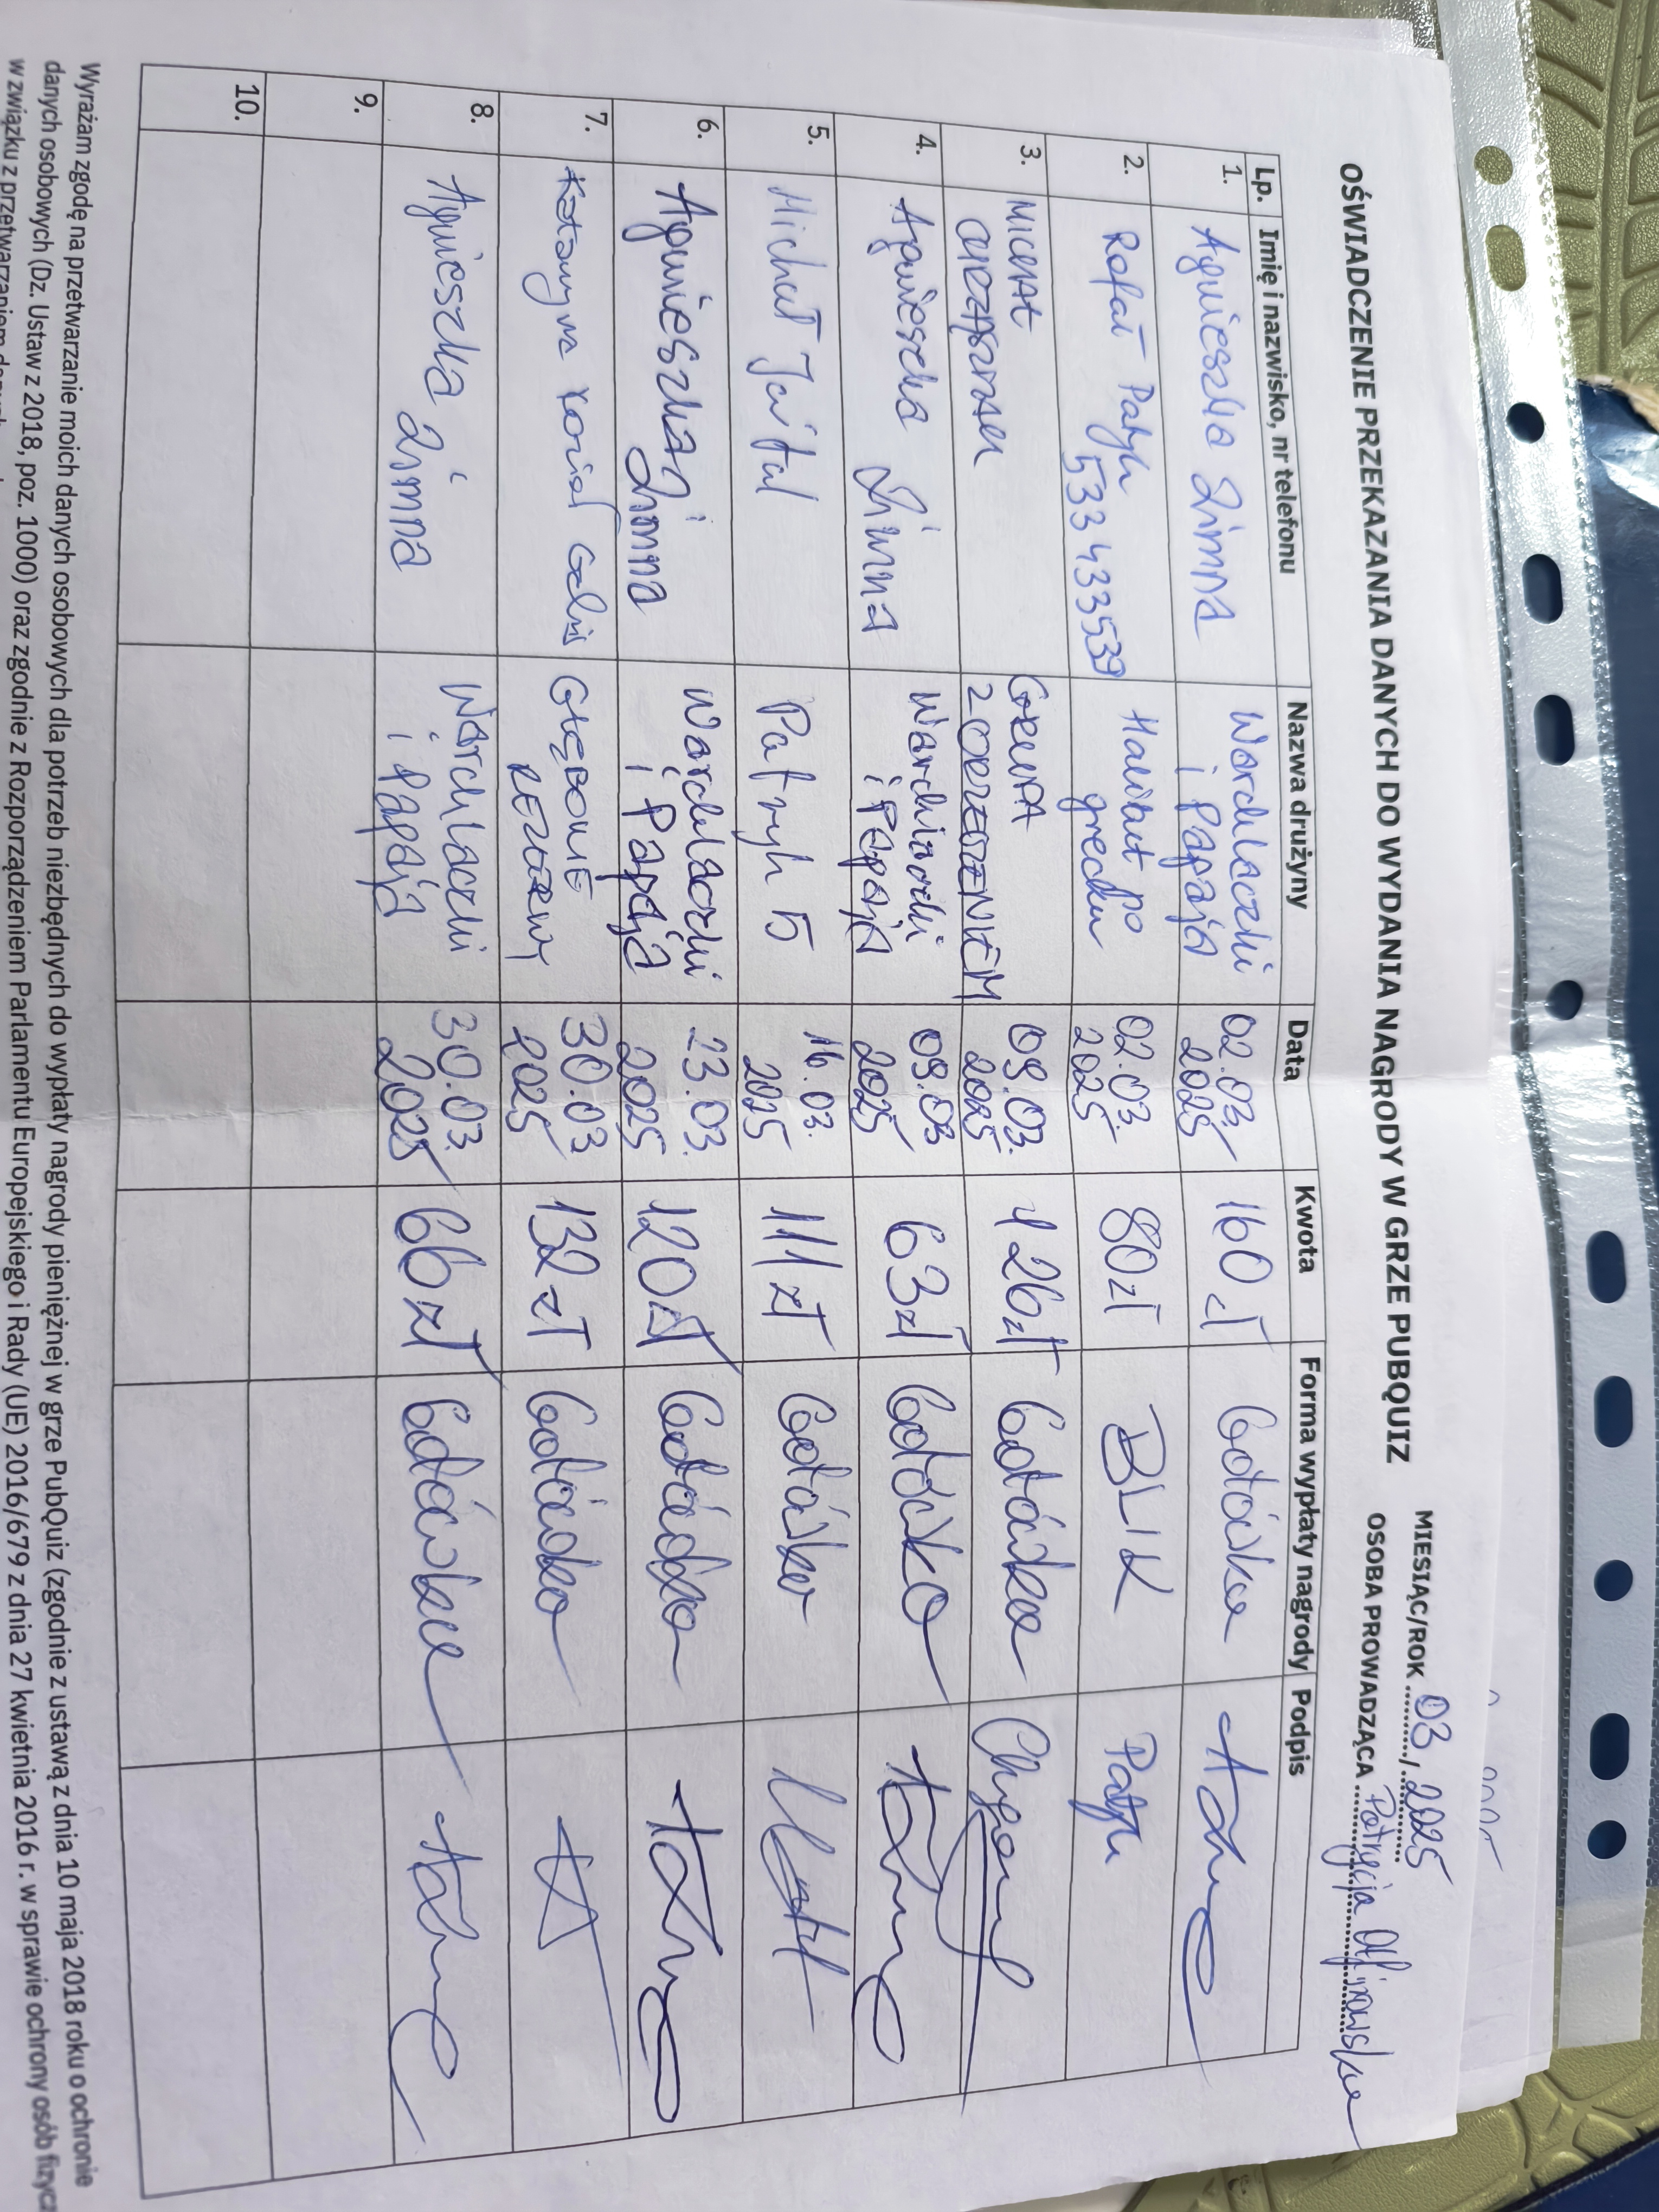 OŚWIADCZENIE PRZEKAZANIA DANYCH DO WYDANIA NAGRODY W GRZE PUBQUIZ
MIESIĄC/ROK 03, 2025
OSOBA PROWADZĄCA Patrycja
Lp. Imię i nazwisko, nr telefonu Nazwa drużyny Data Kwota Forma wypłaty nagrody Podpis
1. Agnieszka Zimna Warchlaczki i Papaja 02.03. 2025 160 zł Gotówka
2. Rafał Patyk 533 433 539 Halibut po grecku 02.03. 2025 80 zł BLIK Patyk
3. MICHAŁ GRUPA Z OBRZĘŻENIEM 09.03. 2025 126 zł Gotówka
4. Agnieszka Zimna Warchlaczki i Papaja 09.03 2025 63 zł Gotówka
5. Michał Patryk 5 16.03. 2025 111 zł Gotówka
6. Agnieszka Zimna Warchlaczki i Papaja 23.03. 2025 120 zł Gotówka
7. Katarzyna GŁĘBOKIE REZERWY 30.03 2025 132 zł Gotówka
8. Agnieszka Zimna Warchlaczki i Papaja 30.03. 2025 66 zł Gotówka
9.
10.
Wyrażam zgodę na przetwarzanie moich danych osobowych dla potrzeb niezbędnych do wypłaty nagrody pieniężnej w grze PubQuiz (zgodnie z ustawą z dnia 10 maja 2018 roku o ochronie
danych osobowych (Dz. Ustaw z 2018, poz. 1000) oraz zgodnie z Rozporządzeniem Parlamentu Europejskiego i Rady (UE) 2016/679 z dnia 27 kwietnia 2016 r. w sprawie ochrony osób fizycz
w związku z przetwarzaniem danych